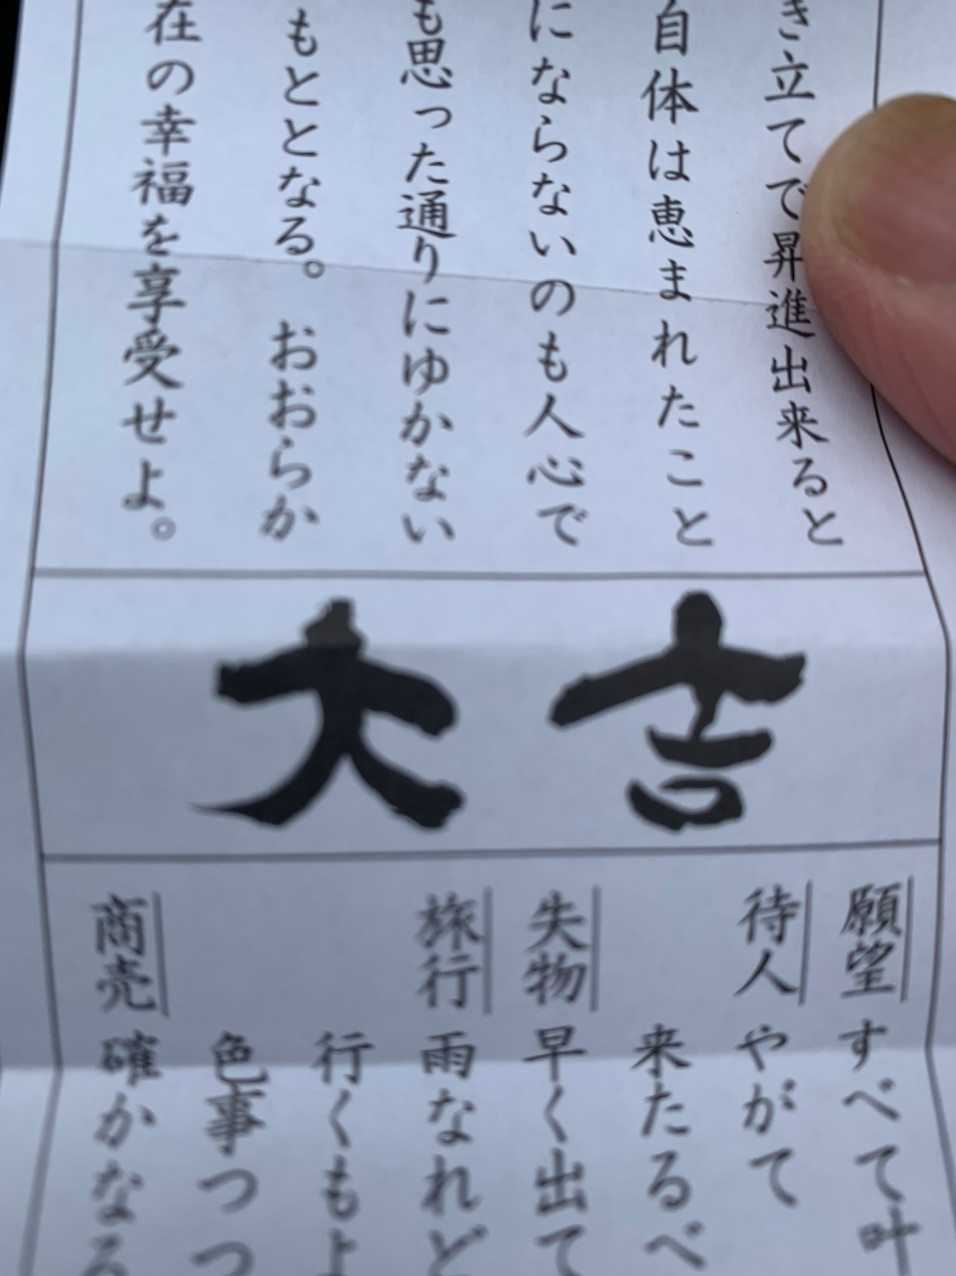 き立てで昇進出来ると
自体は恵まれたこと
にならないのも人心で
も思った通りにゆかない
もととなる。おおらか
在の幸福を享受せよ。
大吉
願望 すべて叶
待人 やがて
来たるべ
失物 早く出て
旅行 雨なれど
行くもよ
色事つつ
商売 確かなる